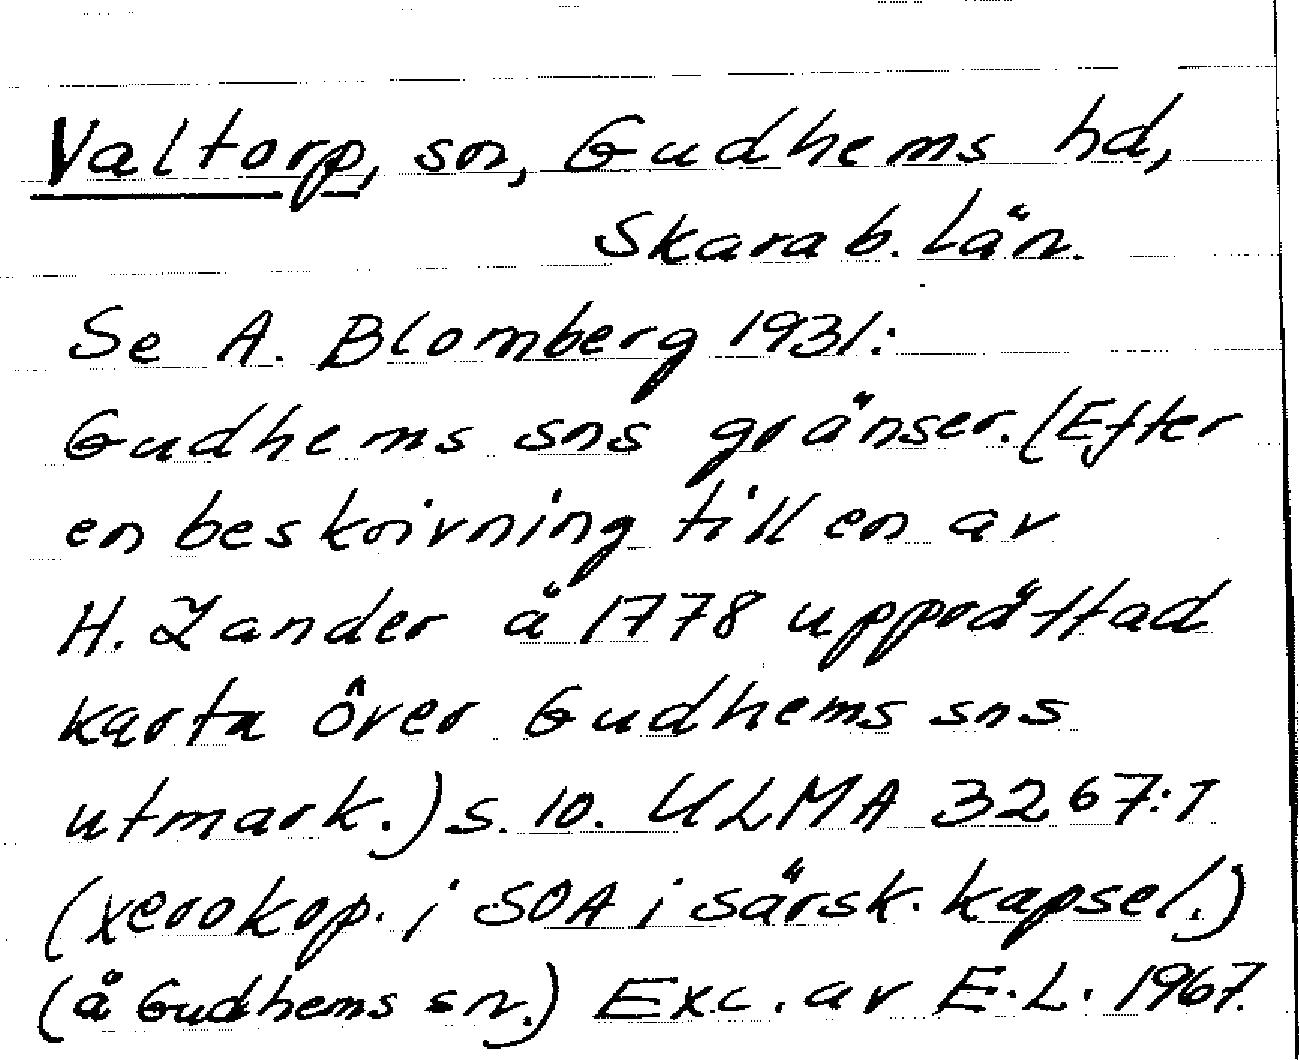 Valtorp, sn, Gudhems hd,
Skarab. län.
Se A. Blomberg 1931:
Gudhems sns gränser. (Efter
en beskrivning till en av
H. Zander å 1778 upprättad
karta över Gudhems sns
utmark.) s. 10. ULMA 3267:7
(xerokop. i SOA i särsk. kapsel.)
(å Gudhems sn.) Exc. av E.L. 1967.